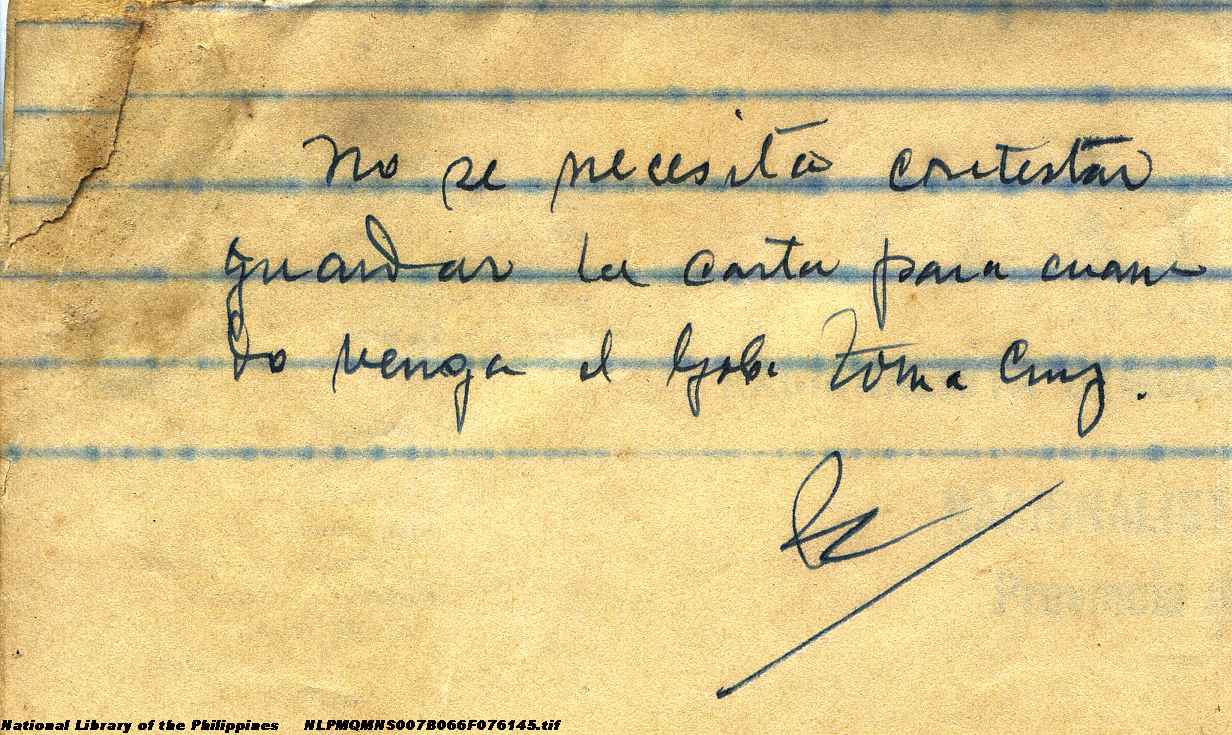 No se necesita contestar
guardar la carta para cuan
do venga el Gob. Zoma Cruz.
National Library of the Philippines NLPMQMNS007B066F076145.tif